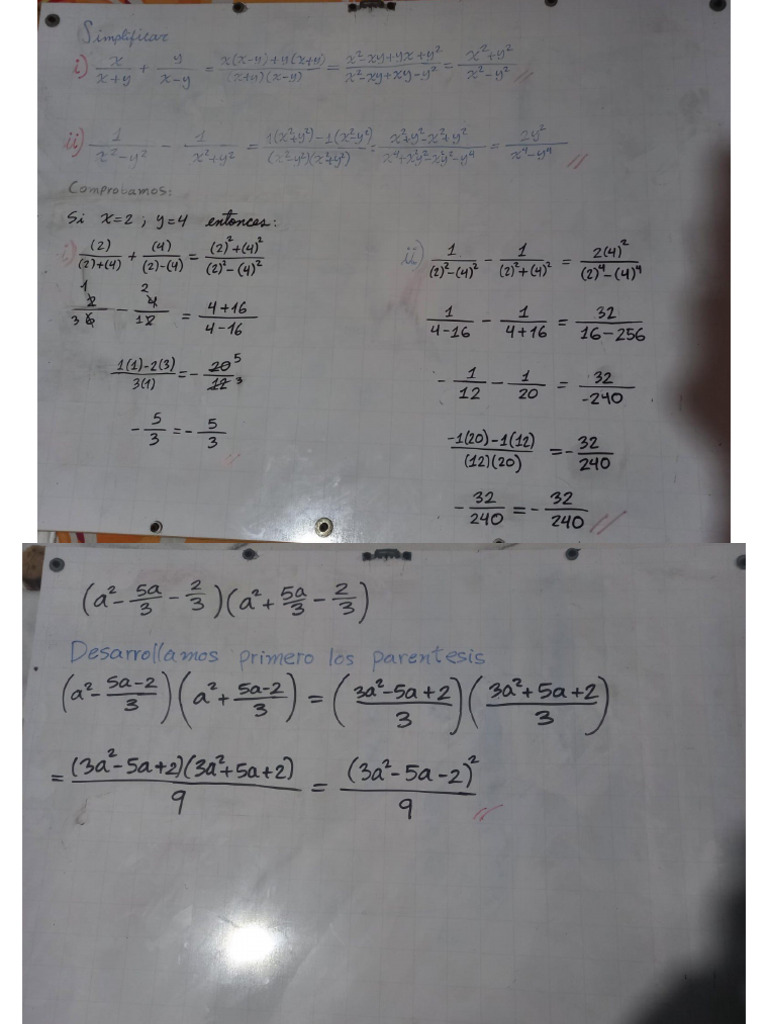 Simplificar
i) x/(x+y) + y/(x-y) = (x(x-y)+y(x+y))/((x+y)(x-y)) = (x²-xy+yx+y²)/(x²-xy+xy-y²) = (x²+y²)/(x²-y²)
ii) 1/(x²-y²) - 1/(x²+y²) = (1(x²+y²)-1(x²-y²))/((x²-y²)(x²+y²)) = (x²+y²-x²+y²)/(x⁴+x²y²-x²y²-y⁴) = 2y²/(x⁴-y⁴)
Comprobamos:
Si x=2 ; y=4 entonces:
i) (2)/((2)+(4)) + (4)/((2)-(4)) = ((2)²+(4)²)/((2)²-(4)²)
2/6 - 4/2 = (4+16)/(4-16)
(1(1)-2(3))/(3(1)) = -20/12
-5/3 = -5/3
ii) 1/((2)²-(4)²) - 1/((2)²+(4)²) = 2(4)²/((2)⁴-(4)⁴)
1/(4-16) - 1/(4+16) = 32/(16-256)
-1/12 - 1/20 = 32/-240
(-1(20)-1(12))/((12)(20)) = -32/240
-32/240 = -32/240
(a² - 5a/3 - 2/3)(a² + 5a/3 - 2/3)
Desarrollamos primero los parentesis
(a² - (5a-2)/3)(a² + (5a-2)/3) = ((3a²-5a+2)/3)((3a²+5a+2)/3)
= ((3a²-5a+2)(3a²+5a+2))/9 = (3a²-5a-2)²/9